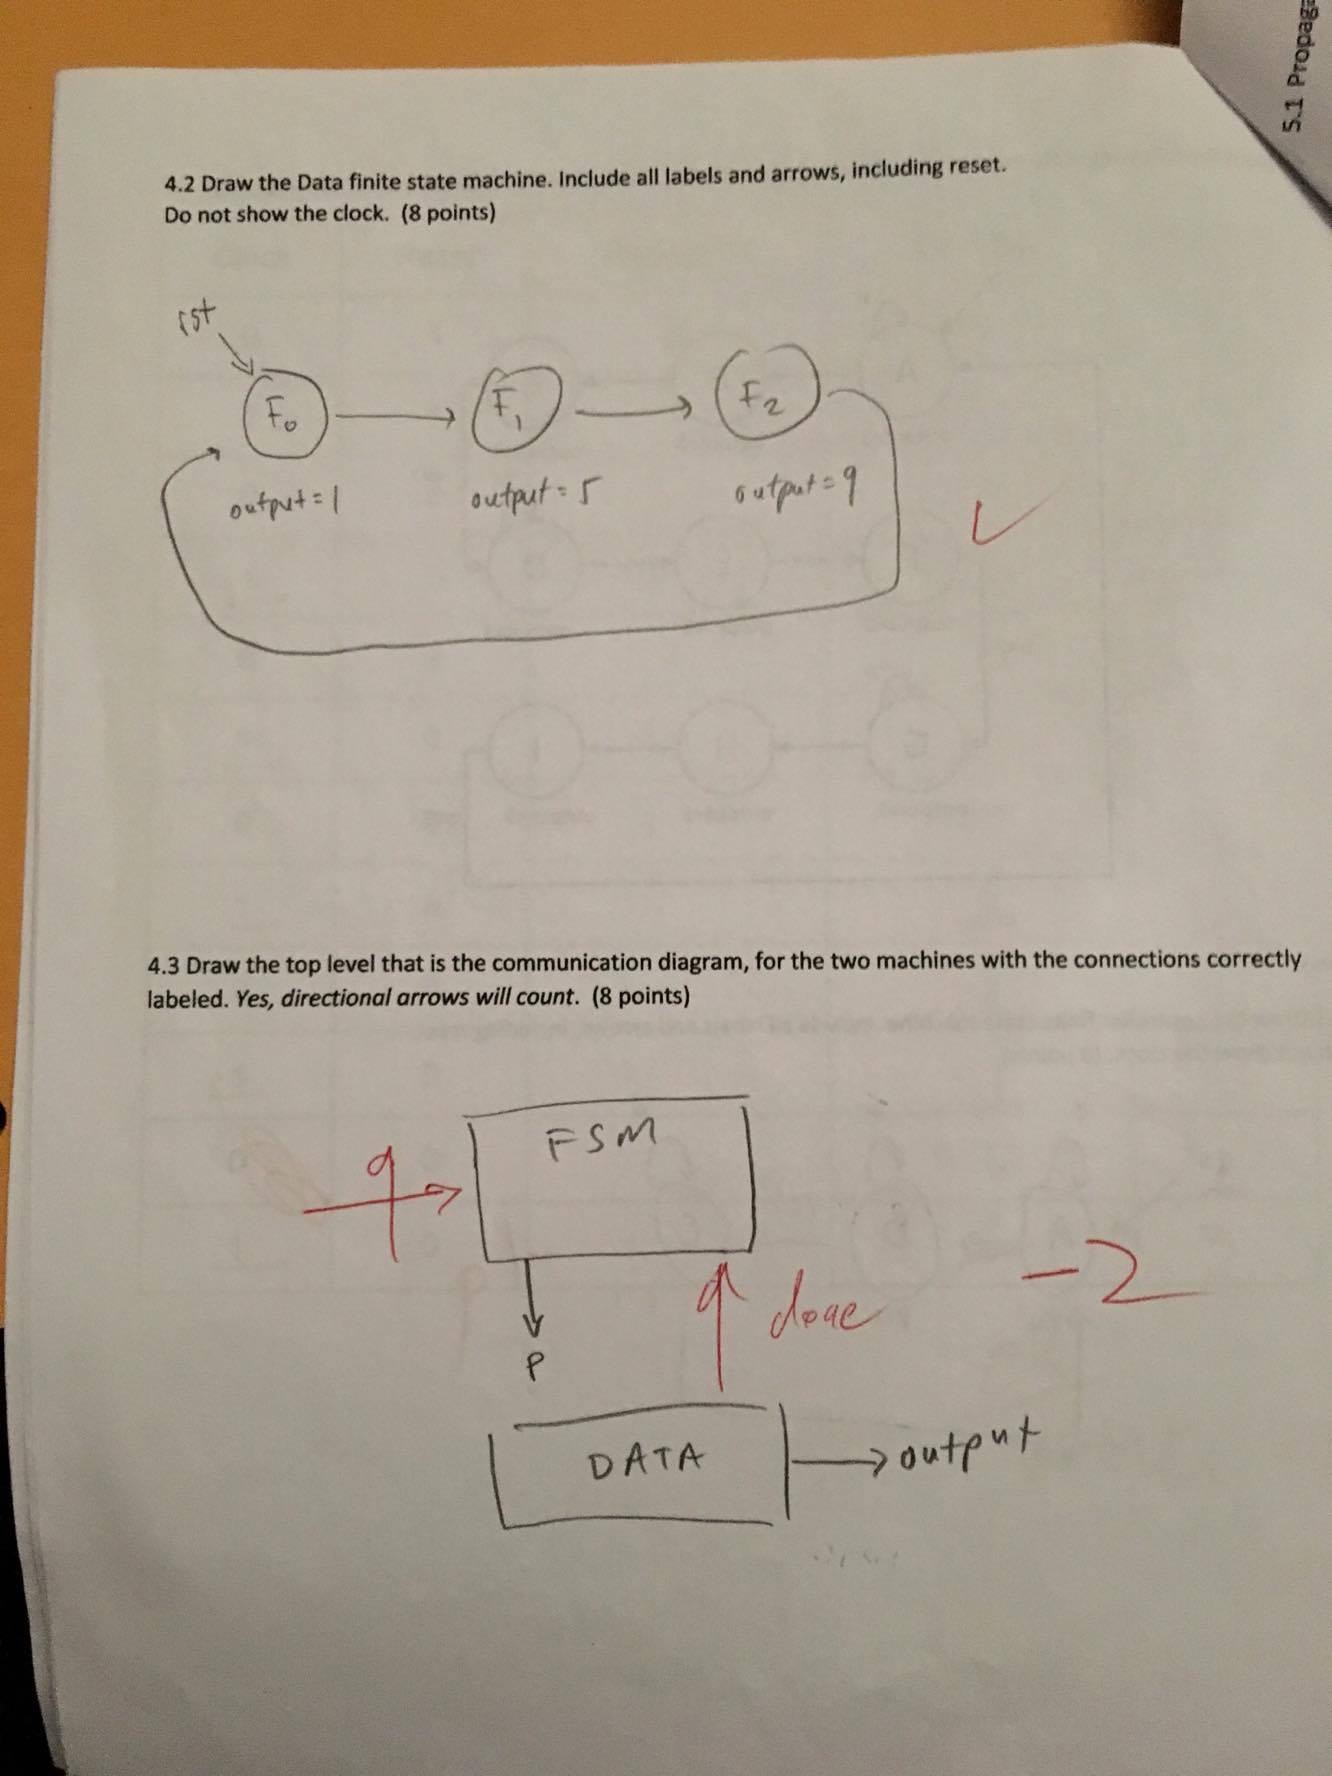 5.1 Propaga
4.2 Draw the Data finite state machine. Include all labels and arrows, including reset.
Do not show the clock. (8 points)
rst
F0 F1 F2
output=1 output=5 output=9
4.3 Draw the top level that is the communication diagram, for the two machines with the connections correctly
labeled. Yes, directional arrows will count. (8 points)
FSM
q
-2
done
P
DATA
output